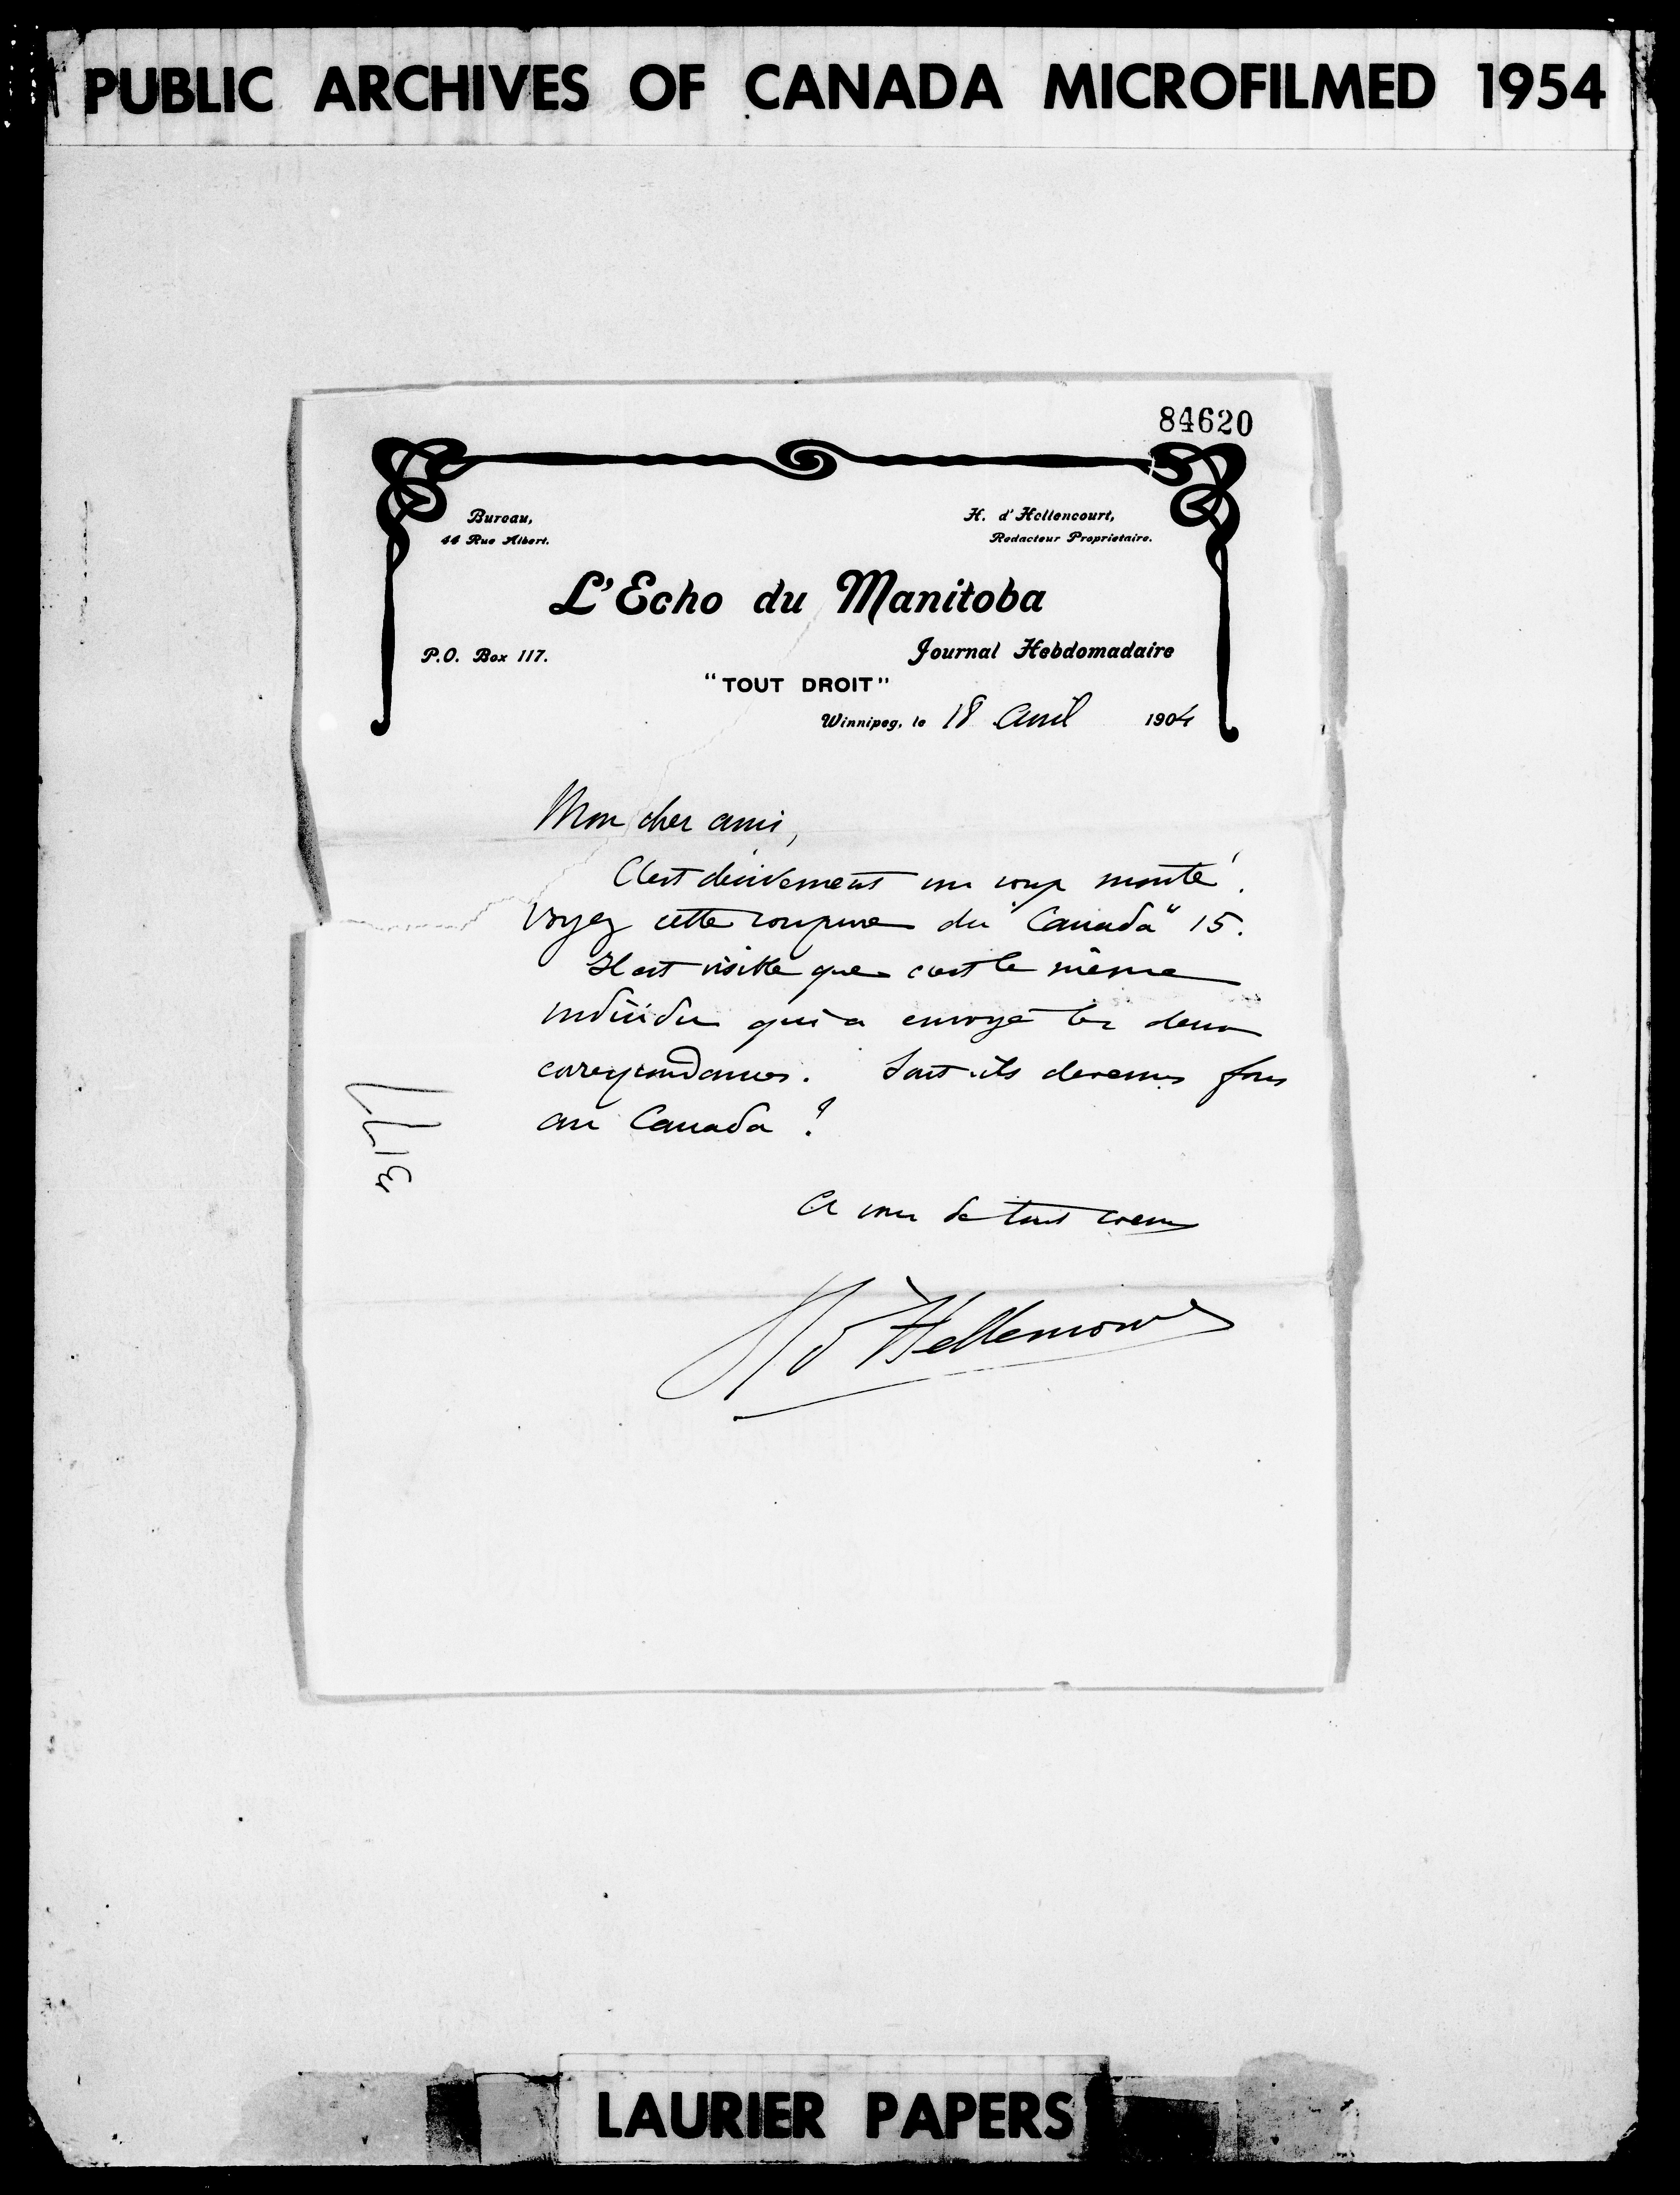 PUBLIC ARCHIVES OF CANADA MICROFILMED 1954
84620
Bureau,
44 Rue Albert.
H. d'Hellencourt,
Redacteur Proprietaire.
L'Echo du Manitoba
P.O. Box 117.
Journal Hebdomadaire
"TOUT DROIT"
Winnipeg, le 18 Avril 1904
Mon cher ami,
C'est décidement un coup monté.
Voyez cette coupure du "Canada" 15.
Il est visible que c'est le même
individu qui a envoyé les deux
correspondances. Sont-ils devenus fous
au Canada ?
A vous de tout coeur
H d'Hellencourt
LAURIER PAPERS